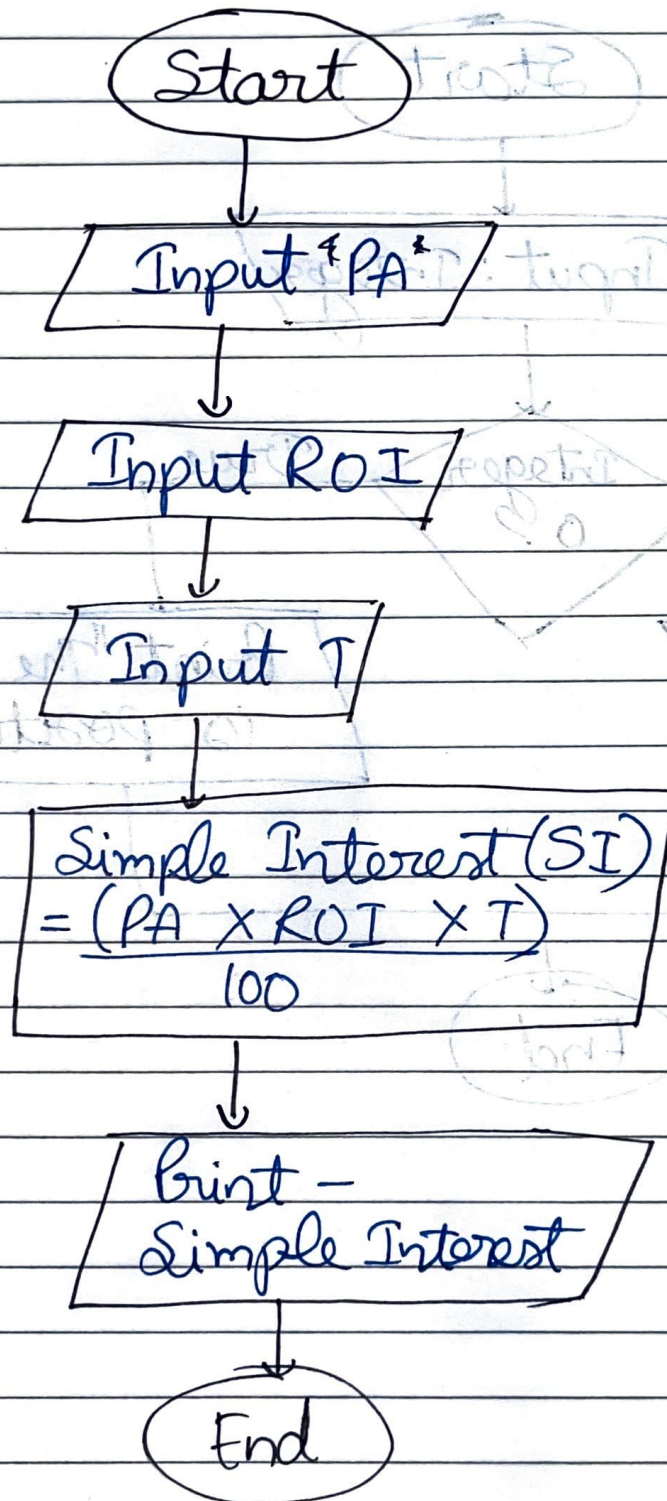 Start
Input "PA"
Input ROI
Input T
Simple Interest (SI)
= (PA X ROI X T)
100
Print -
Simple Interest
End